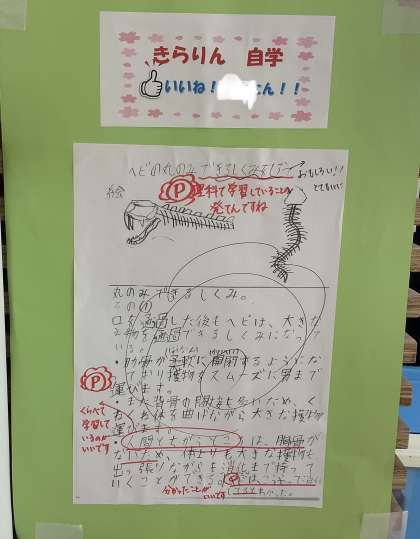 きらりん 自学
いいね！ さん！！
ヘビの丸のみできるしくみ
おもしろい！！
絵
P 理科で学習していることの
発てんですね
丸のみできるしくみ。
その①
口を通過した後もヘビは、大きな
物を通過できるしくみになって
いる。
・肋骨が柔軟に開閉するようにな
ており獲物がスムーズに胃まで
運びます。
・また背骨の関接も多いため、く
体を曲げながら大きな獲物
運びます。
・人間とちがうてこは、胸骨が
ないため、体よりも大きな獲物も
出っ張りながらも消化まで持って
いくことができる。
P
くらべて
学習して
いるのが
いいです
P
分かったことが
いいです